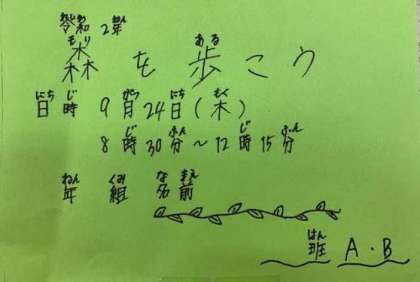 令和2年
森を歩こう
日時 9月24日(木)
8時30分~12時15分
年 組 名前
班 A・B